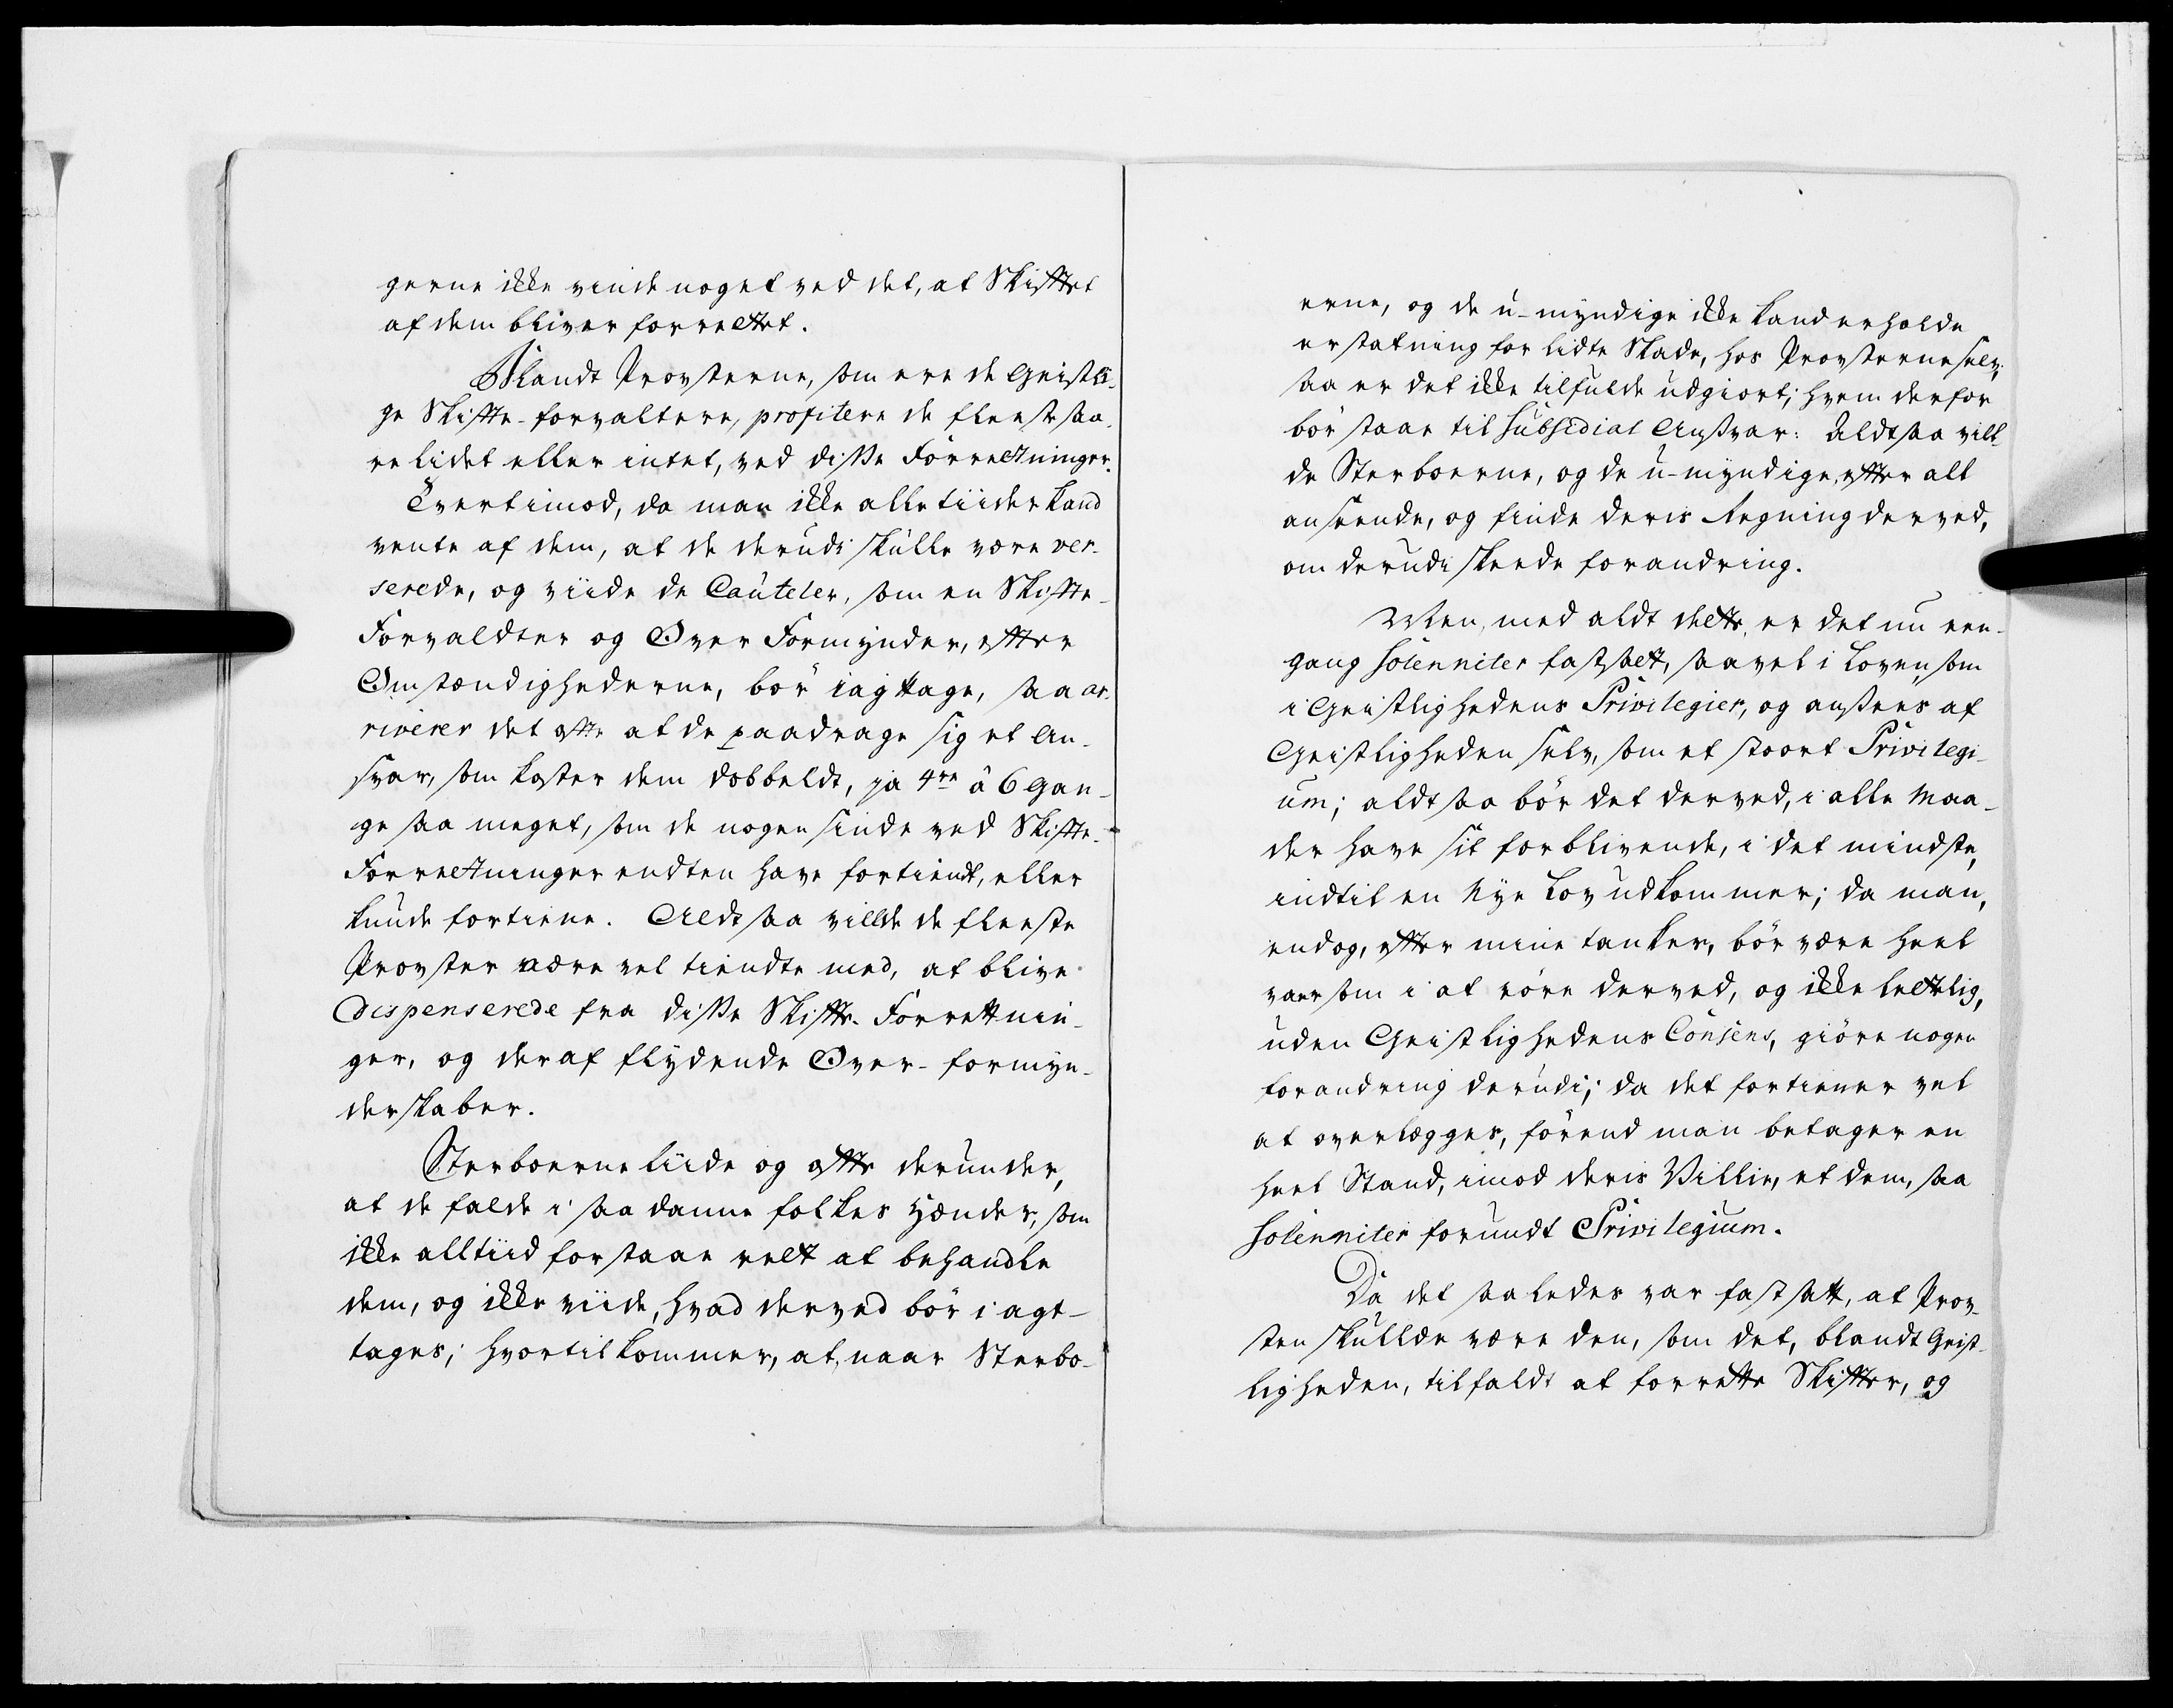 gerne ikke vinde noget ved det, at Skifftet
af dem bliver forrettet.
Blandt Provsterne, som ere de Geistli-
ge Skiffte-forvaltere, profitere de fleeste saa-
re lidet eller intet, ved disse Forretninger.
Tvertimod, da man ikke alle tiider kand
vente af dem, at de derudi skulle være ver-
serede, og viide de Cauteler, som en Skiffte-
Forvaldter og Over Formynder, effter
Omstændighederne, bör iagttage, saa ar-
riverer det offte at de paadrage sig et An-
svar, som koster dem dobbeldt, ja 4re á 6 Gan-
ge saa meget, som de nogensinde ved Skiffte-
Forretninger endten have fortient, eller
kunde fortiene. Aldtsaa villde de fleeste
Provster være vel tiendte med, at blive
dispenserede fra disse Skiffte-Forrettnin-
ger, og deraf flydende Over-formyn-
derskaber.
Sterboerne liide og offte derunder,
at de falde i saadanne folkes Hænder, som
ikke alltiid forstaae rett at behandle
dem, og ikke viide, hvad derved bör iagt-
tages; hvortil kommer, at, naar Sterbo-
erne, og de u-myndige ikke kand erholde
erstatning for lidte Skade, hos Provsterne selv,
saa er det ikke tilfulde udgiort, hvem derfor
bör staae til subsidial Ansvar: Aldtsaa vill-
de Sterboerne, og de u-myndige, effter all
anseende, og finde deris Regning derved,
om derudi skeede forandring.
Men, med aldt dette, er det nu een-
gang solenniter fastsatt, saavel i Loven, som
i Geistlighedens Privilegier, og ansees af
Geistligheden selv, som et stoort Privilegi-
um; aldtsaa bör det derved, i alle Maa-
der have sit forblivende, i det mindste,
indtil en Nye Lov udkommer; da man,
endog, effter mine tanker, bör være heel
varsom i at röre derved, og ikke lettelig,
uden Geistlighedens Consens, giöre nogen
forandring derudi; da det fortiener vel
at overlægges, förend man betager en
heel Stand, imod deris Villie, et dem, saa
solenniter forundt Privilegium.
Da det saaledes var fastsatt, at Prov-
sten skullde være den, som det, blandt Geist-
ligheden, tilfaldt at forrette Skiffter, og